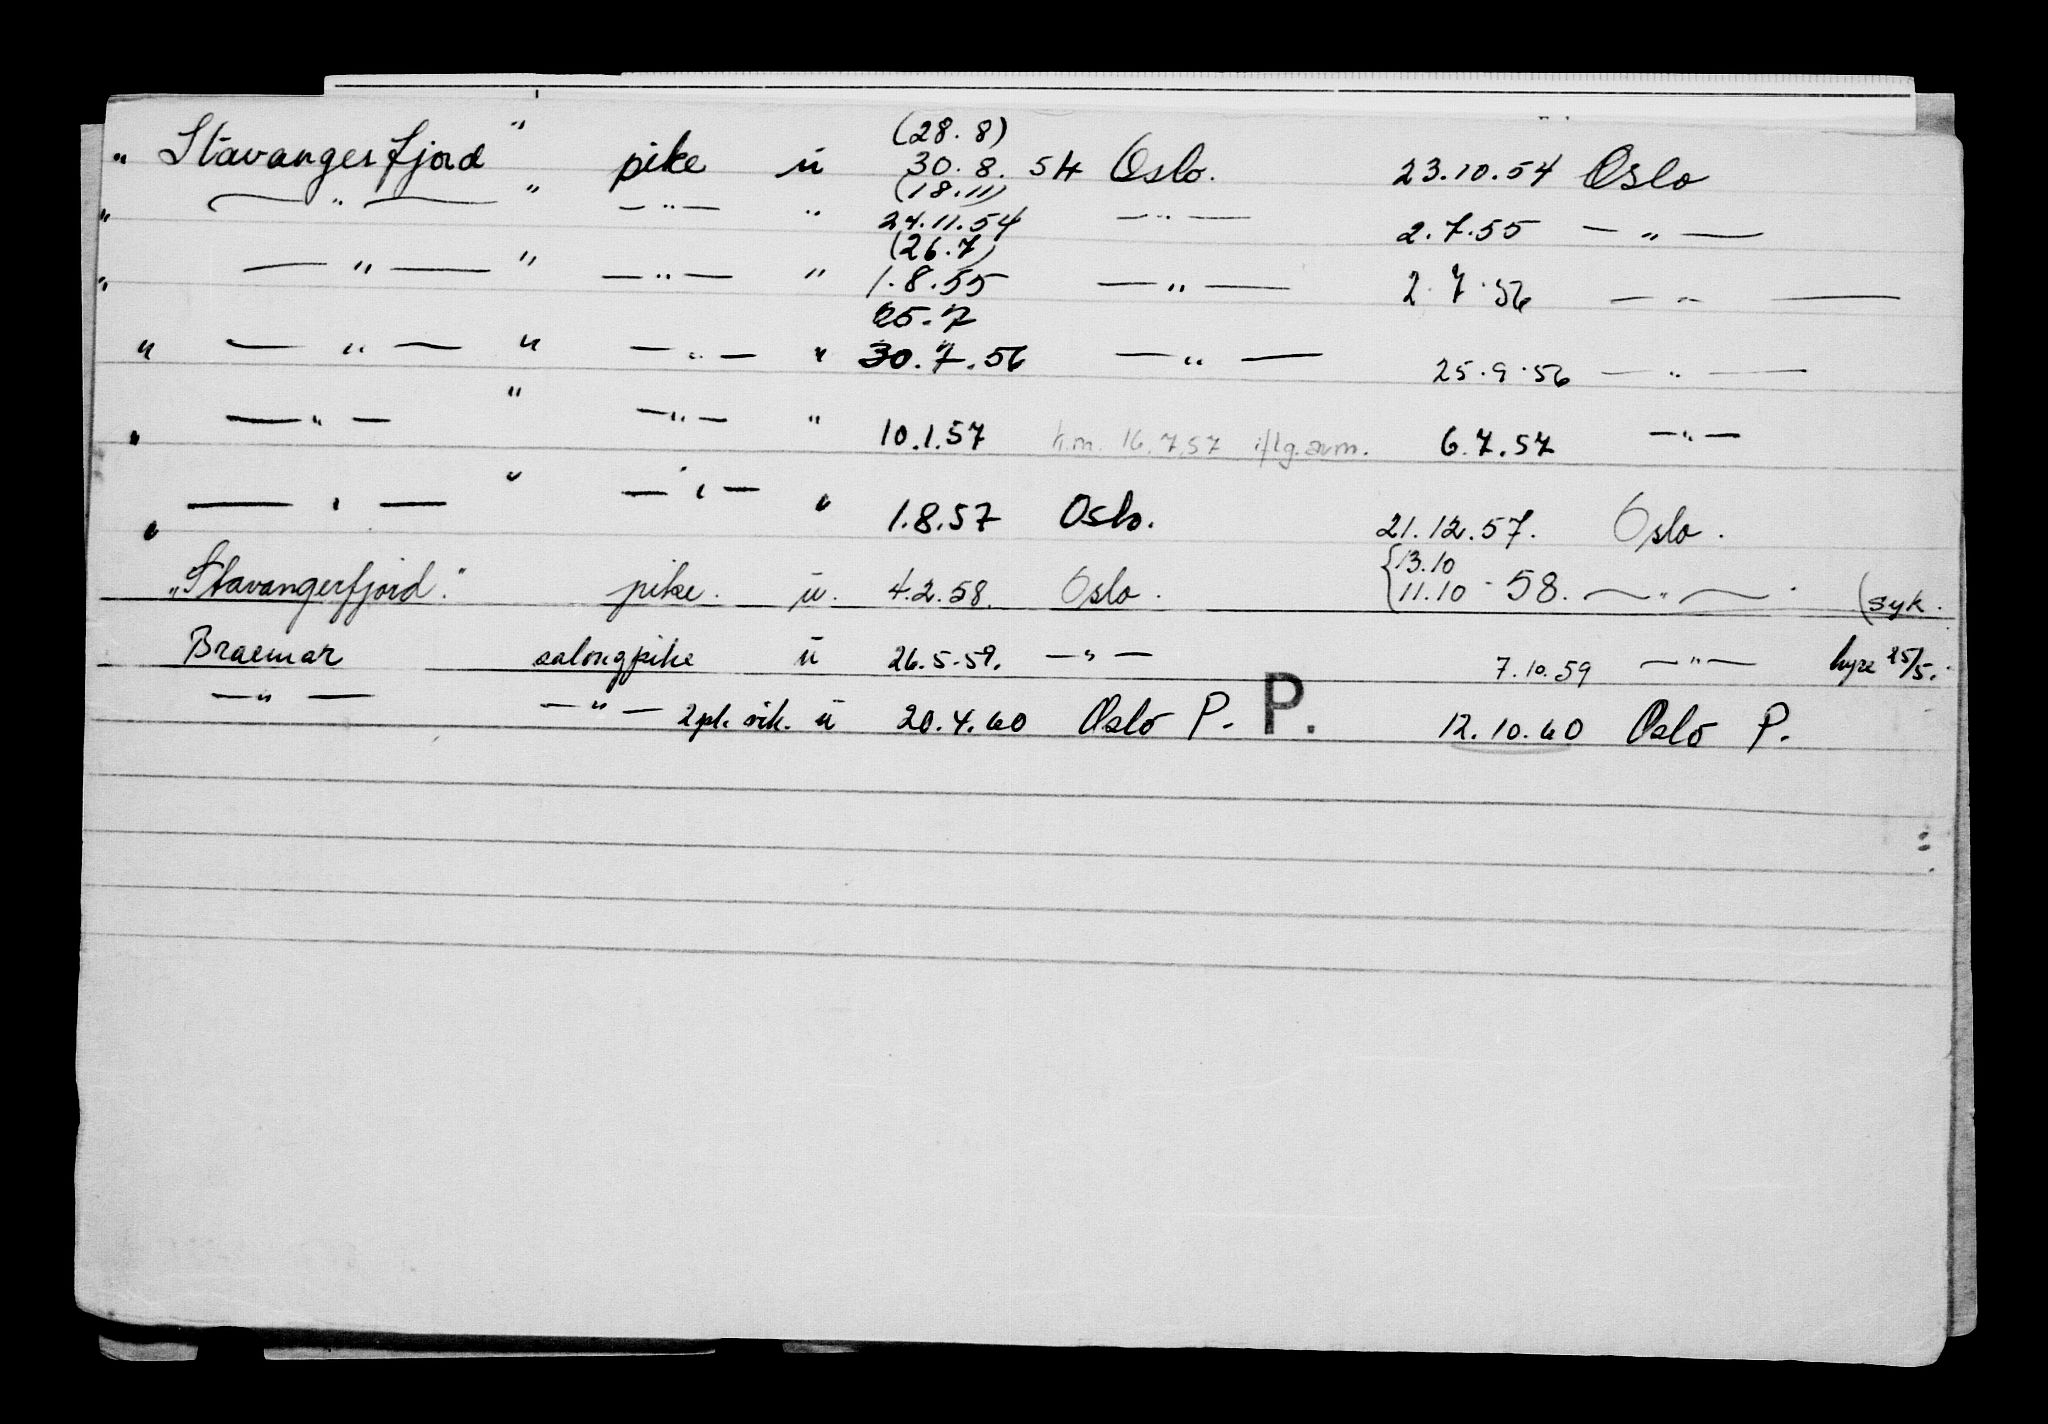 (28.8)
„ Stavangerfjord " pike u 30.8.54 Oslo. 23.10.54 Oslo
(18.11)
" — " — " — " — " 24.11.54 — " — 2.7.55 — " —
(26.7)
" — " — " — " — " 1.8.55 — " — 2.7.56 — " —
25.7
" — " — " — " — " 30.7.56 — " — 25.9.56 — " —
" — " — " — " — " 10.1.57 h.m. 16.7.57 iflg. avm. 6.7.57 — " —
" — " — " — " — " 1.8.57 Oslo. 21.12.57. Oslo.
{13.10
„Stavangerfjord." pike. u. 4.2.58. Oslo. 11.10 - 58. — " — . (syk.
Braemar salongpike u 26.5.59. — " — 7.10.59 — " — hyre 25/5.
— " — — " — 2 pk. vik. u 20.4.60 Oslo P. P. 12.10.60 Oslo P.